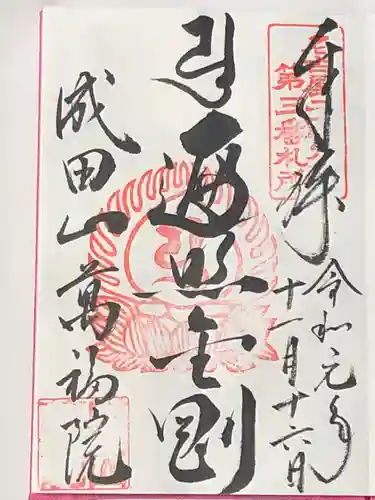 第三番札所
奉拝
令和元年
十一月十六日
遍照金剛
成田山萬福院